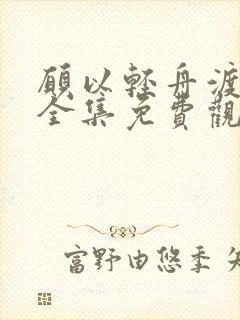 願以輕舟渡
全集免費觀
富野由悠季